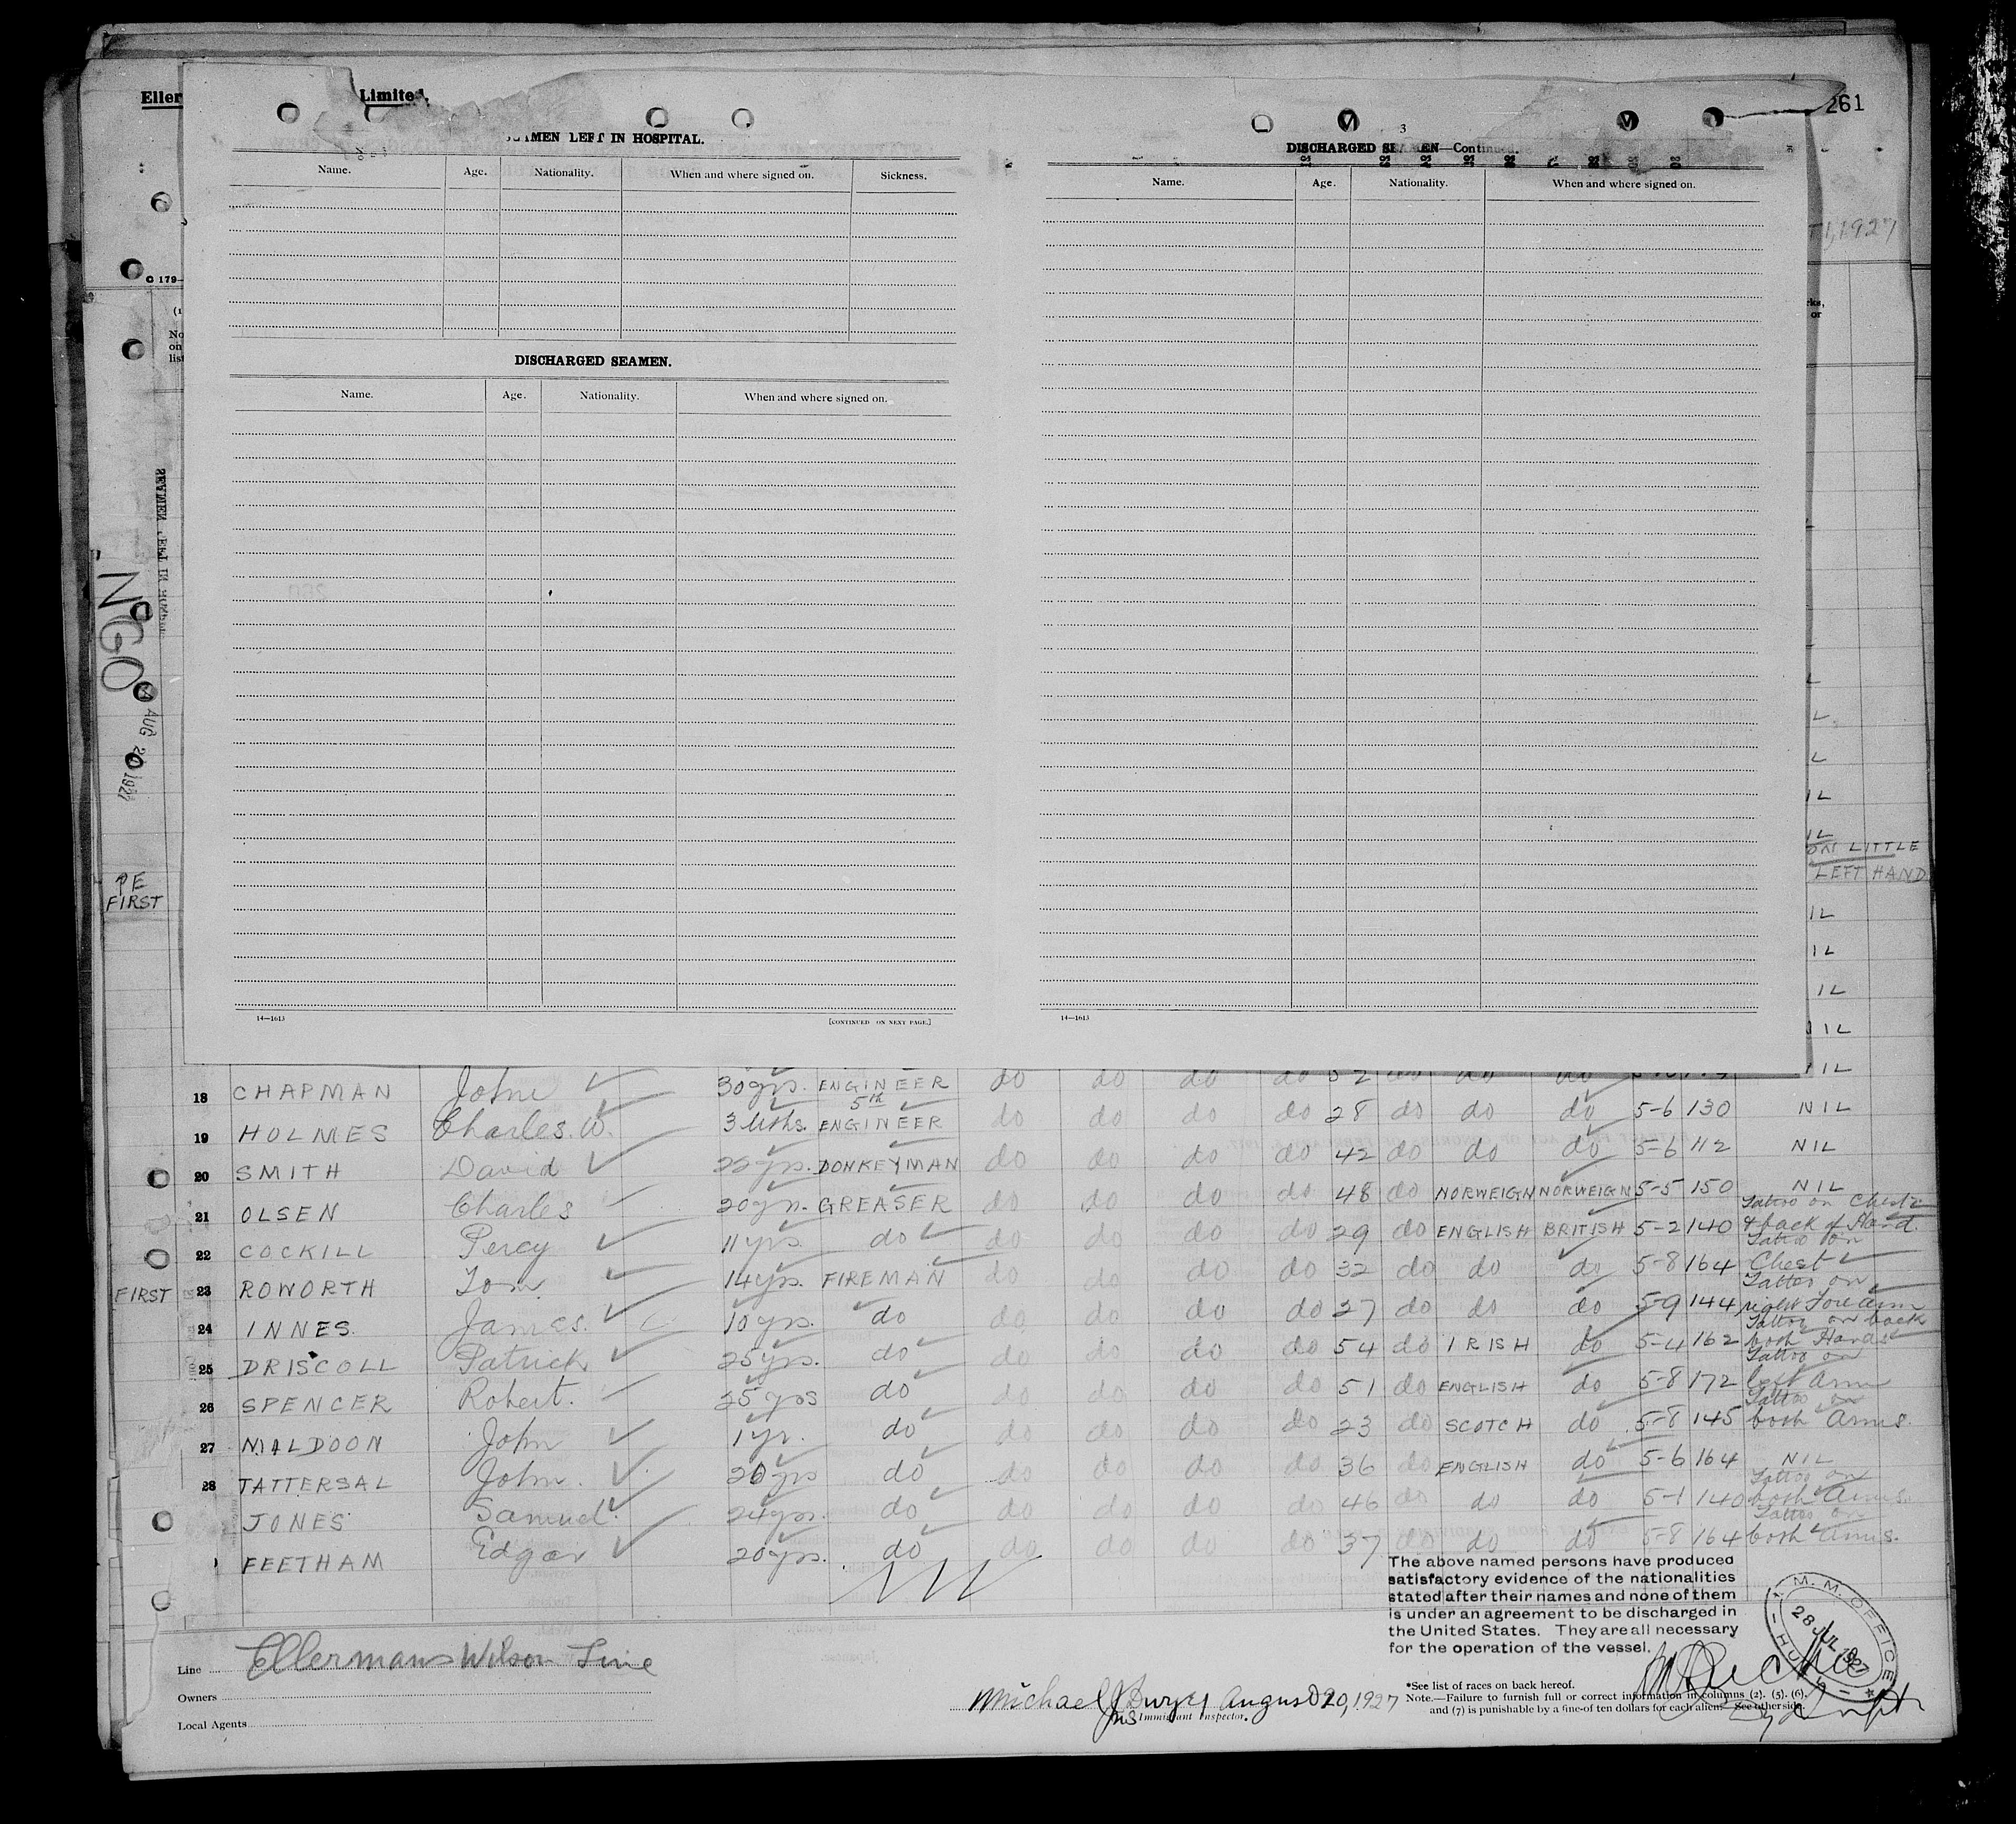 Eller
Limited.
261
AMEN LEFT IN HOSPITAL.
Name. Age. Nationality. When and where signed on. Sickness.
DISCHARGED SEAMEN.
Name. Age. Nationality. When and where signed on.
14—1613
[CONTINUED ON NEXT PAGE.]
3
DISCHARGED SEAMEN—Continued.
Name. Age. Nationality. When and where signed on.
14—1613
1, 1927
C 179—
(1
No
on
list
rks,
or
SEAMEN LEFT IN
No GO
AUG 20 1927
PE
FIRST
IL
ON LITTLE
LEFT HAND
IL
IL
IL
IL
IL
18 CHAPMAN John 30yrs. ENGINEER do do do do 52 do do do
19 HOLMES Charles. W. 3 Mths. 5th ENGINEER do do do do 28 do do do 5-6 130 NIL
20 SMITH David 22yrs. DONKEYMAN do do do do 42 do do do 5-6 112 NIL
21 OLSEN Charles 20yrs. GREASER do do do do 48 do NORWEIGN NORWEIGN 5-5 150 NIL
22 COCKILL Percy 11yrs do do do do do 29 do ENGLISH BRITISH 5-2 140 Tattoo on Chest & back of Hand.
FIRST 23 ROWORTH Tom 14yrs. FIREMAN do do do do 32 do do do 5-8 164 Tattoo on Chest
24 INNES. James. 10yrs. do do do do do 27 do do do 5-9 144 Tattoo on right Forearm
25 DRISCOLL Patrick 25yrs. do do do do do 54 do IRISH do 5-4 162 Tattoo on back both Hands
26 SPENCER Robert. 25yrs do do do do do 51 do ENGLISH do 5-8 172 Tattoo on left Arm
27 MALDOON John 1yr. do do do do do 23 do SCOTCH do 5-8 145 Tattoo on both Arms.
28 TATTERSAL John. 20yrs do do do do do 36 do ENGLISH do 5-6 164 NIL
JONES Samuel. 24yrs. do do do do do 46 do do do 5-1 140 Tattoo on both Arms.
FEETHAM Edgar 20yrs. do do do do do 37 do do do 5-8 164 Tattoo on both Arms.
The above named persons have produced
satisfactory evidence of the nationalities
stated after their names and none of them
is under an agreement to be discharged in
the United States. They are all necessary
for the operation of the vessel.
M. M. OFFICE
28 JUL 1927
HULL
Line Ellermans Wilson Line
Owners
Local Agents
Michael J Durycy August 20, 1927
Immigrant Inspector.
*See list of races on back hereof.
Note.—Failure to furnish full or correct information in columns (2), (5), (6),
and (7) is punishable by a fine of ten dollars for each alien. See other side.